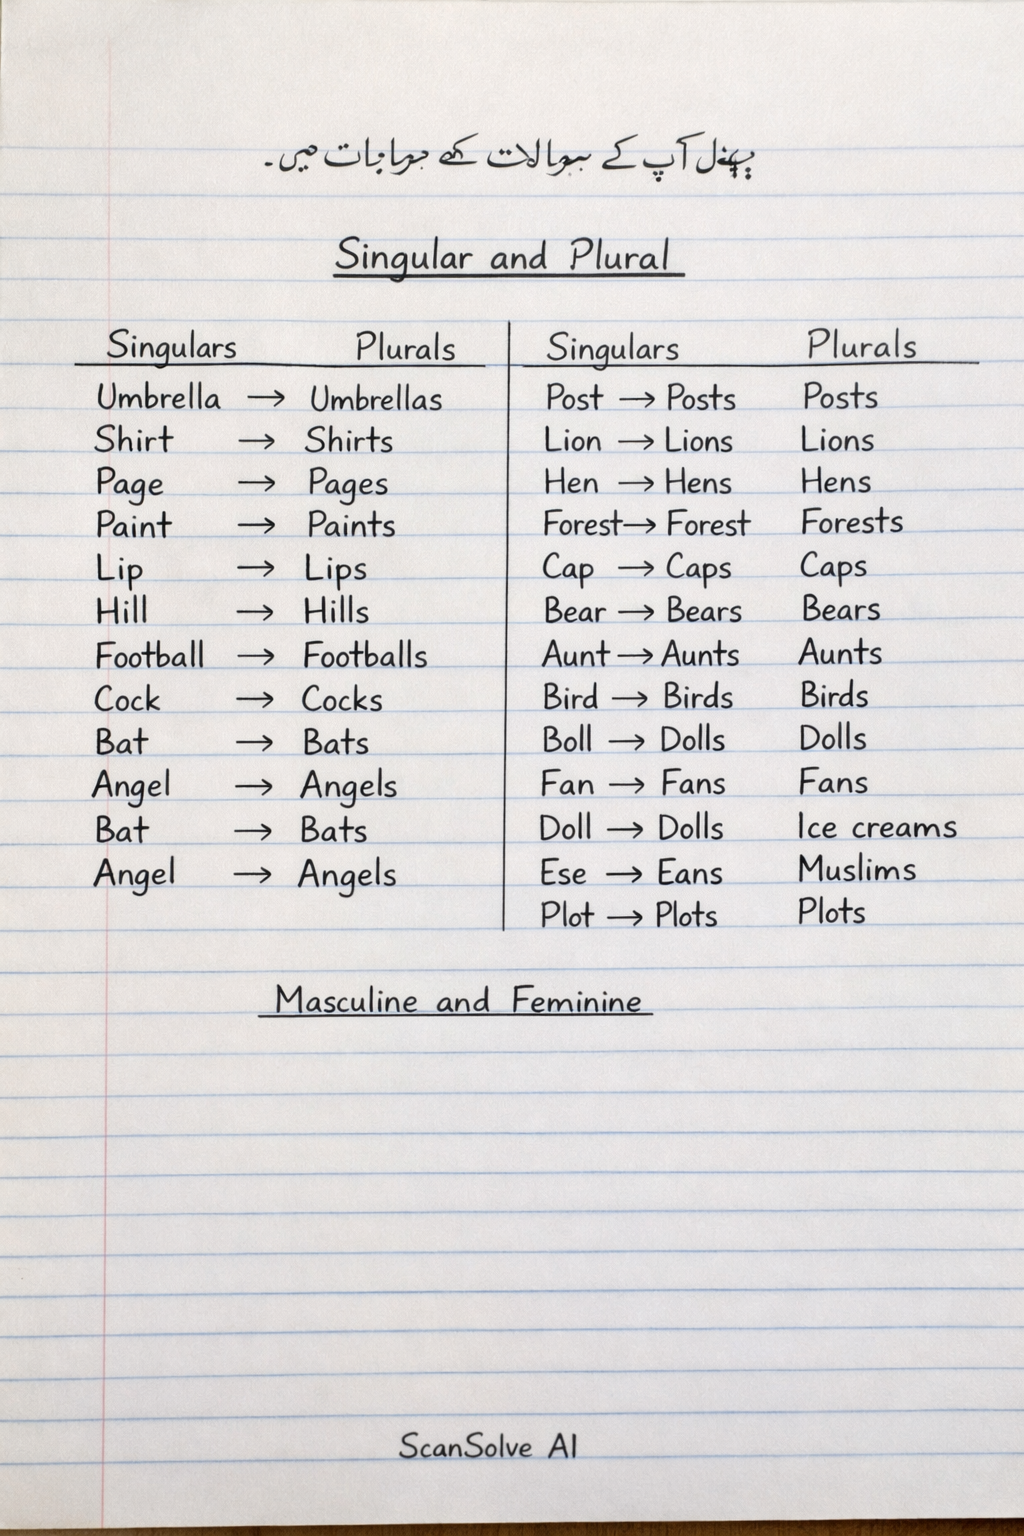 آپ کے
Singular and Plural
Singulars Plurals Singulars Plurals
Umbrella → Umbrellas Post → Posts Posts
Shirt → Shirts Lion → Lions Lions
Page → Pages Hen → Hens Hens
Paint → Paints Forest → Forest Forests
Lip → Lips Cap → Caps Caps
Hill → Hills Bear → Bears Bears
Football → Footballs Aunt → Aunts Aunts
Cock → Cocks Bird → Birds Birds
Bat → Bats Boll → Dolls Dolls
Angel → Angels Fan → Fans Fans
Bat → Bats Doll → Dolls Ice creams
Angel → Angels Ese → Eans Muslims
Plot → Plots Plots
Masculine and Feminine
ScanSolve AI